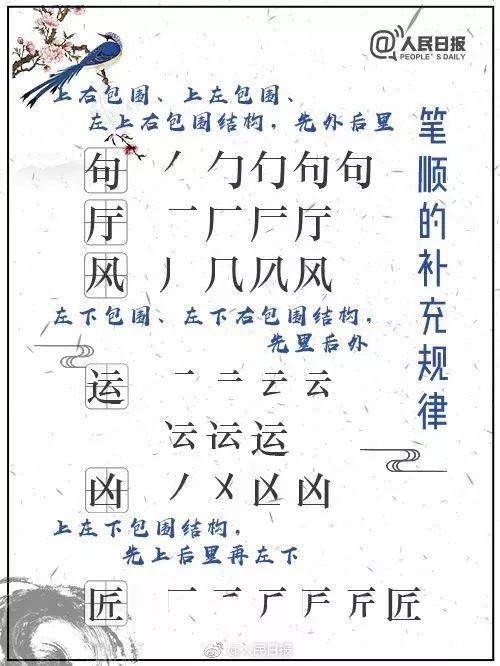 @人民日报
PEOPLE'S DAILY
笔顺的补充规律
上右包围、上左包围、
左上右包围结构，先外后里
句 丿 勹 勹 句 句
厅 一 厂 厅 厅
风 丿 几 凡 风
左下包围、左下右包围结构，
先里后外
运 一 二 云 云
云 运 运
凶 丿 㐅 凶 凶
上左下包围结构，
先上后里再左下
匠 一 二 斤 斤 斤 匠
@人民日报